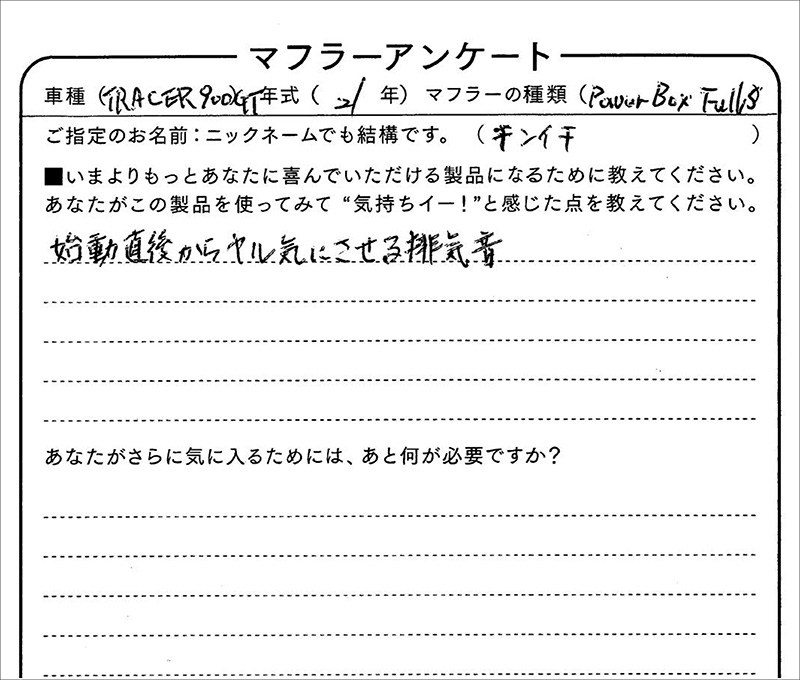 マフラーアンケート
車種(TRACER900GT年式( 21 年) マフラーの種類(PowerBox FullS
ご指定のお名前:ニックネームでも結構です。 ( キンイチ )
■いまよりもっとあなたに喜んでいただける製品になるために教えてください。
あなたがこの製品を使ってみて “気持ちイー!”と感じた点を教えてください。
始動直後からヤル気にさせる排気音
あなたがさらに気に入るためには、あと何が必要ですか?